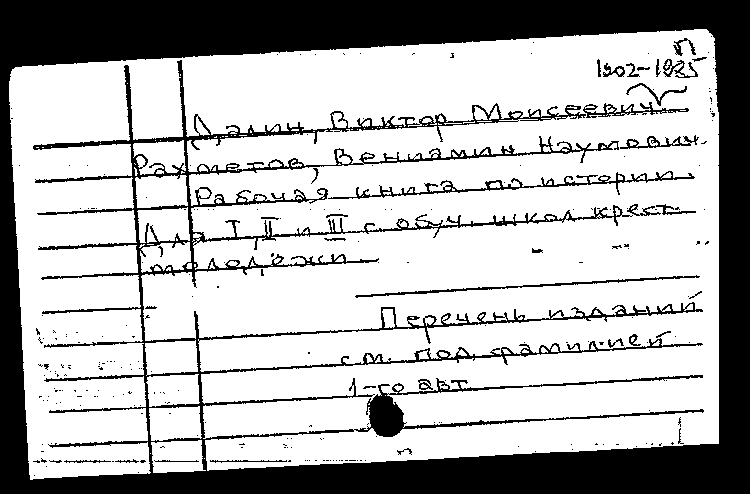 П
1902-1985
Далин, Виктор Моисеевич.
Рахметов, Вениамин Наумович.
Рабочая книга по истории.
Для I, II и III г. обуч. школ крест.
молодёжи.
Перечень изданий
см. под фамилией
1-го авт.